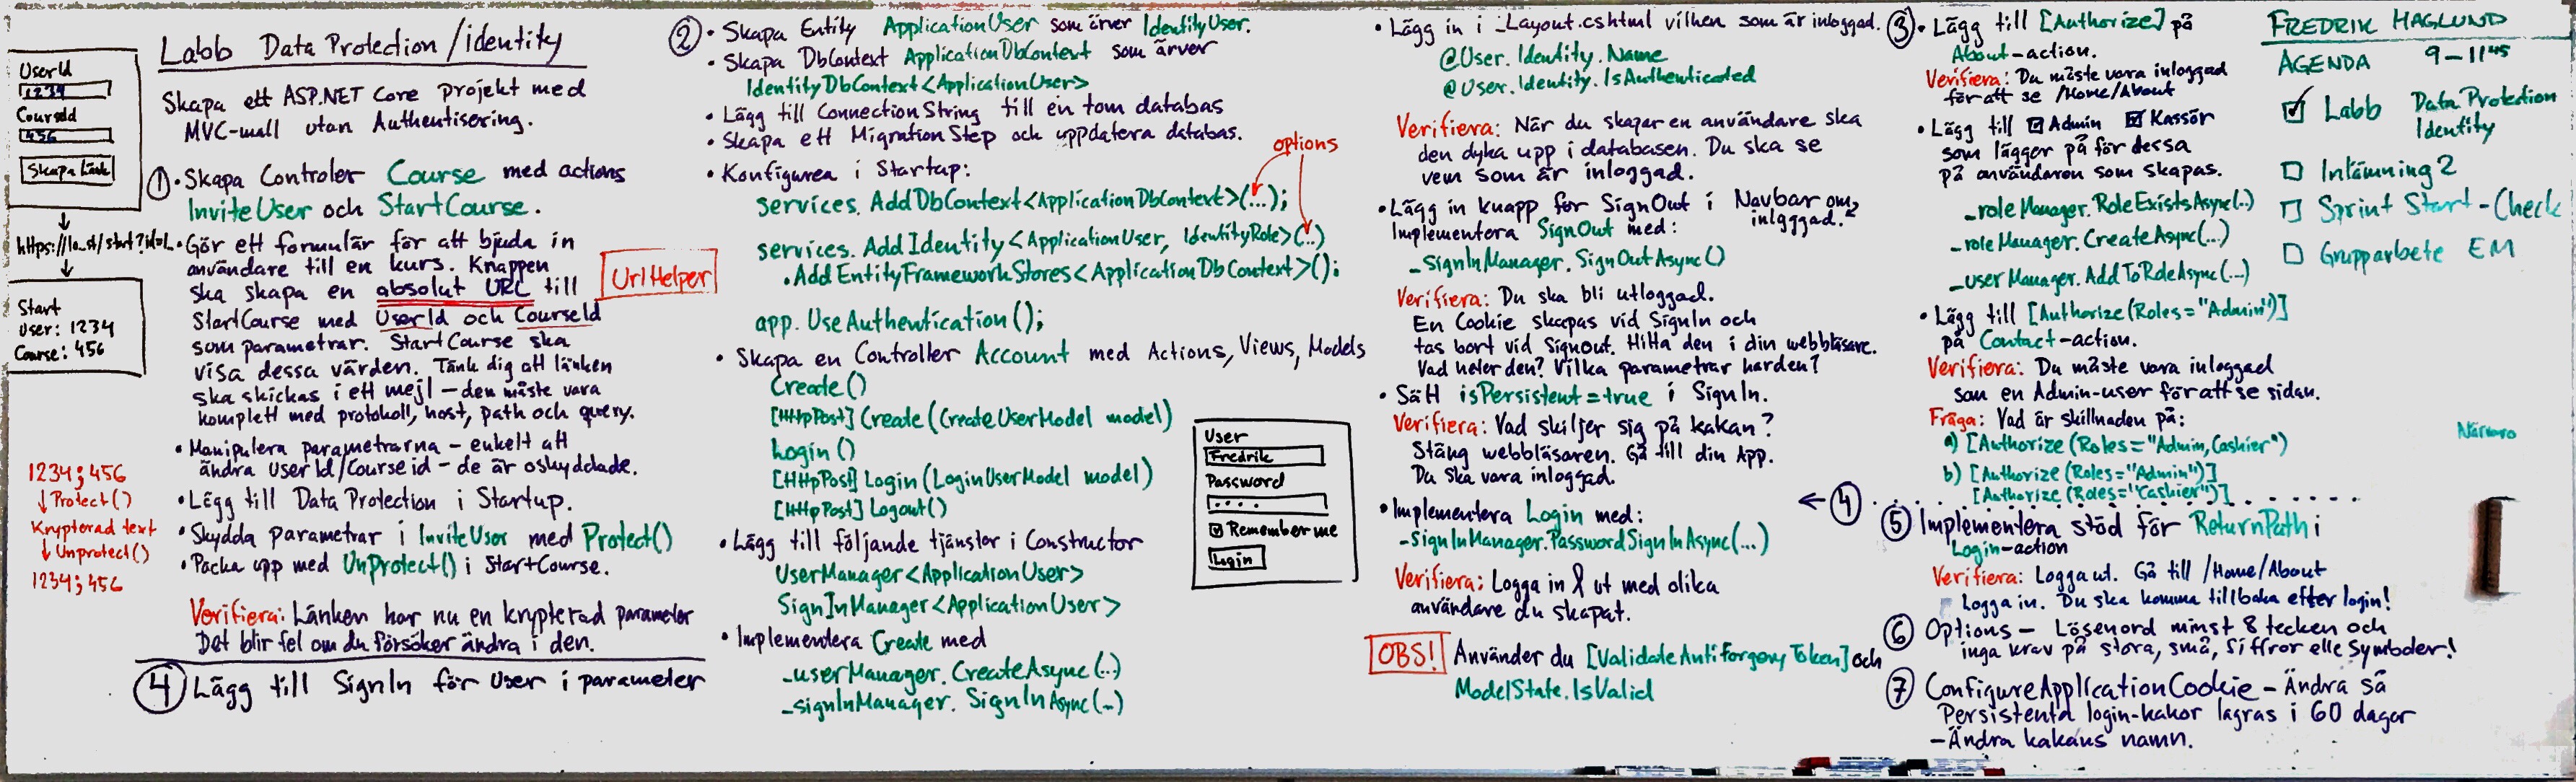 Labb Data Protection/identity
Skapa ett ASP.NET Core projekt med
MVC-mall utan Authentisering.
UserId
1234
CourseId
456
Skapa Länk
https://lo_st/start?id=L
Start
User: 1234
Course: 456
① • Skapa Controler Course med actions
InviteUser och StartCourse.
• Gör ett formulär för att bjuda in
användare till en kurs. Knappen
ska skapa en absolut URL till
StartCourse med UserId och CourseId
som parametrar. StartCourse ska
visa dessa värden. Tänk dig att länken
ska skickas i ett mejl – den måste vara
komplett med protokoll, host, path och query.
UrlHelper
• Manipulera parametrarna – enkelt att
ändra User Id/Course id – de är oskyddade.
• Lägg till Data Protection i Startup.
• Skydda parametrar i InviteUser med Protect()
• Packa upp med UnProtect() i StartCourse.
1234;456
↓ Protect()
Krypterad text
↓ Unprotect()
1234;456
Verifiera: Länken har nu en krypterad parameter
Det blir fel om du försöker ändra i den.
④ Lägg till SignIn för User i parameter
② • Skapa Entity ApplicationUser som ärver IdentityUser.
• Skapa DbContext ApplicationDbContext som ärver
IdentityDbContext<ApplicationUser>
• Lägg till ConnectionString till en tom databas
• Skapa ett Migration Step och uppdatera databas.
• Konfigurera i Startup:
options
services.AddDbContext<ApplicationDbContext>(...);
services.AddIdentity<ApplicationUser, IdentityRole>(..)
.AddEntityFrameworkStores<ApplicationDbContext>();
app.UseAuthentication();
• Skapa en Controller Account med Actions, Views, Models
Create()
[HttpPost] Create(CreateUserModel model)
Login()
[HttpPost] Login(LoginUserModel model)
[HttpPost] Logout()
• Lägg till följande tjänster i Constructor
UserManager<ApplicationUser>
SignInManager<ApplicationUser>
• Implementera Create med
_userManager.CreateAsync(..)
_signInManager.SignInAsync(..)
User
Fredrik
Password
....
Remember me
Login
• Lägg in i _Layout.cshtml vilken som är inloggad.
@User.Identity.Name
@User.Identity.IsAuthenticated
Verifiera: När du skapar en användare ska
den dyka upp i databasen. Du ska se
vem som är inloggad.
• Lägg in knapp för SignOut i Navbar om
inloggad.
Implementera SignOut med:
_SignInManager.SignOutAsync()
Verifiera: Du ska bli utloggad.
En Cookie skapas vid SignIn och
tas bort vid Signout. Hitta den i din webbläsare.
Vad heter den? Vilka parametrar har den?
• Sätt isPersistent=true i SignIn.
Verifiera: Vad skiljer sig på kakan?
Stäng webbläsaren. Gå till din App.
Du ska vara inloggad.
← ④
• Implementera Login med:
_SignInManager.PasswordSignInAsync(...)
Verifiera: Logga in & ut med olika
användare du skapat.
OBS! Använder du [ValidateAntiForgeryToken] och
ModelState.IsValid
③ • Lägg till [Authorize] på
About-action.
Verifiera: Du måste vara inloggad
för att se /Home/About
• Lägg till ☑ Admin ☑ Kassör
som lägger på för dessa
på användaren som skapas.
_roleManager.RoleExistsAsync(..)
_roleManager.CreateAsync(...)
_userManager.AddToRoleAsync(...)
• Lägg till [Authorize(Roles="Admin")]
på Contact-action.
Verifiera: Du måste vara inloggad
som en Admin-user för att se sidan.
Fråga: Vad är skillnaden på:
a) [Authorize(Roles="Admin,Cashier")
b) [Authorize(Roles="Admin")]
[Authorize(Roles="Cashier")]
⑤ Implementera stöd för ReturnPath i
Login-action
Verifiera: Logga ut. Gå till /Home/About
Logga in. Du ska komma tillbaka efter login!
⑥ Options – Lösenord minst 8 tecken och
inga krav på stora, små, siffror elle Symboler!
⑦ ConfigureApplicationCookie – Ändra så
Persistenta login-kakor lagras i 60 dagar
– Ändra kakans namn.
FREDRIK HAGLUND
AGENDA 9–11⁴⁵
☑ Labb Data Protection
Identity
☐ Inlämning 2
☐ Sprint Start-Check
☐ Grupparbete EM
Närvaro